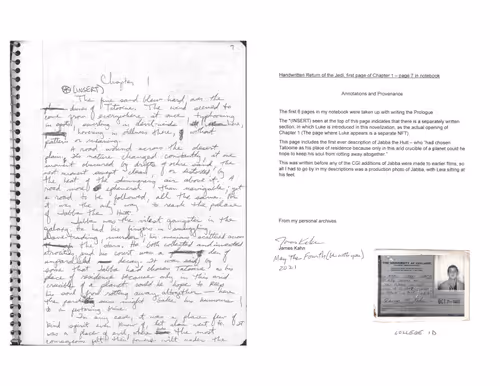 7
Chapter 1
(INSERT)
The fine sand blew hard over the
dunes of Tatooine. The wind seemed to
come from everywhere at once, typhooning
in spots, swirling in devil-winds
hovering in stillness there, without
pattern or meaning.
A road wound across the desert
plain. Its nature changed constantly, at one
moment obscured by drifts of sand, the
next moment swept clean, or distorted by
the heat of the shimmering air above it. A
road more ephemeral than navigable; yet
a road to be followed, all the same. For
it was the only way to reach the palace
of Jabba the Hutt.
Jabba was the vilest gangster in the
galaxy. He had his fingers in smuggling,
slave-trading, murder; his minions scattered across
the stars. He both collected and invented
atrocities, and his court was a den of
unparalleled decay. It was said by
some that Jabba had chosen Tatooine as his
place of residence because only in this arid
crucible of a planet could he hope to keep
his soul from rotting away altogether — here
the sun might bake his humours
to a festering brine.
In any case, it was a place few of
kind spirit even knew of, let alone
was a place of evil, where the most
courageous felt their powers wilt under the
Handwritten Return of the Jedi, first page of Chapter 1 – page 7 in notebook
Annotations and Provenance
The first 6 pages in my notebook were taken up with writing the Prologue
The "(INSERT) seen at the top of this page indicates that there is a separately written
section, in which Luke is introduced in this novelization, as the actual opening of
Chapter 1 (The page where Luke appears is a separate NFT)
This page includes the first ever description of Jabba the Hutt – who "had chosen
Tatooine as his place of residence because only in this arid crucible of a planet could he
hope to keep his soul from rotting away altogether."
This was written before any of the CGI additions of Jabba were made to earlier films, so
all I had to go by in my descriptions was a production photo of Jabba, with Leia sitting at
his feet.
From my personal archives
James Kahn
James Kahn
May the Fourth (be with you)
2021
THE UNIVERSITY OF CHICAGO
COLLEGE ID